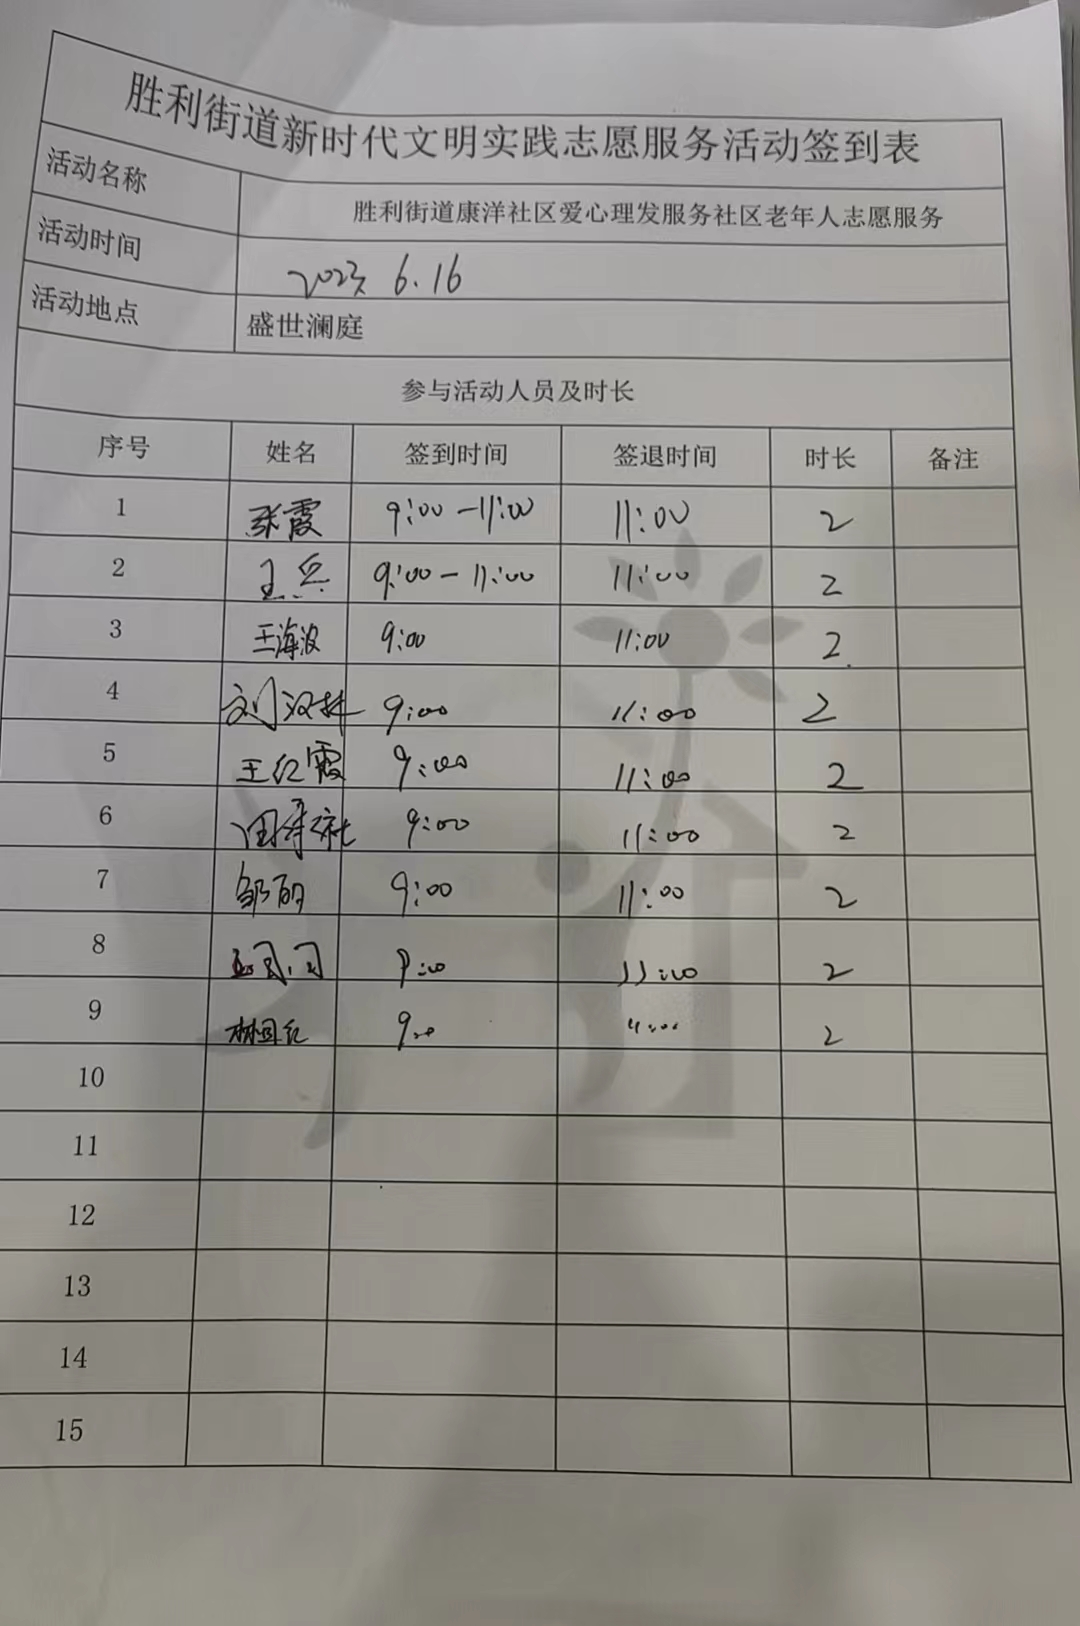 胜利街道新时代文明实践志愿服务活动签到表
活动名称 胜利街道康洋社区爱心理发服务社区老年人志愿服务
活动时间 2023 6.16
活动地点 盛世澜庭
参与活动人员及时长
序号 姓名 签到时间 签退时间 时长 备注
1 张霞 9:00-11:00 11:00 2
2 王兵 9:00-11:00 11:00 2
3 王海波 9:00 11:00 2
4 刘汉林 9:00 11:00 2
5 王红霞 9:00 11:00 2
6 9:00 11:00 2
7 邹丽 9:00 11:00 2
8 9:00 11:00 2
9 9:00 11:00 2
10
11
12
13
14
15